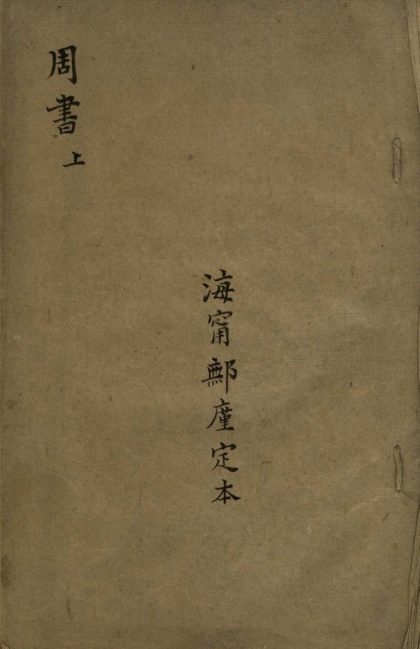 周書 上
海甯鄦廑定本